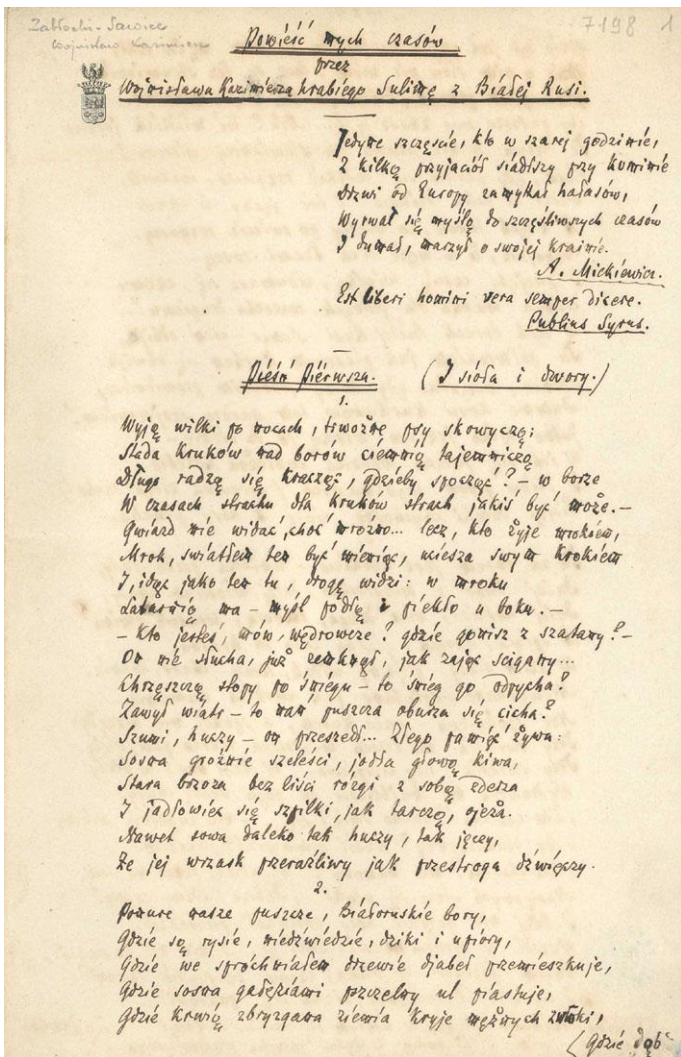 Zabłocki-Sawicz
Wojsław Kazimierz
7198 1
Powieść mych czasów
przez
Wojwisława Kazimierza hrabiego Sulimę z Białej Rusi.
Jedyne szczęście, kto w szarej godzinie,
Z kilką przyjaciół siadłszy przy kominie
Drzwi od Europy zamykał hałasów,
Wyrwał się myślą do szczęśliwszych czasów
I dumał, marzył o swojej krainie.
A. Mickiewicz.
Est liberi homini vera semper dicere.
Publius Syrus.
Pieśń Piérwsza. (I sioła i dwory.)
1.
Wyją wilki po nocach, trwożne psy skowyczą;
Stada kruków nad borów ciemnią tajemniczą
Długo radzą się kracząc, gdzieby spocząć? – w borze
W czasach strachu dla kruków strach jakiś być może. –
Gwiazd nie widać, choć mroźno... lecz, kto żyje mrokiem,
Mrok, światłem ten być mieniąc, uciesza swym krokiem
I, idąc jako ten tu, drogę widzi: w mroku
Latarnię ma – myśl podłą i piekło u boku. –
– Kto jesteś, mów, wędrowcze? gdzie gonisz z szatany? –
On nie słucha, już zemknął, jak zając ścigany...
Chrzęszczą stopy po śniegu – to śnieg go odpycha?
Zawył wiatr – to nań puszcza oburza się cicha?
Szumi, huczy – on przeszedł... Złego pamięć żywa:
Sosna groźnie szeleści, jodła głową kiwa,
Stara brzoza bez liści rózgi z sobą zderza
I jadłowiec się szpilki, jak tarczą, ojeża.
Nawet sowa daleko tak huczy, tak jęczy,
Że jej wrzask przeraźliwy jak przestroga dźwięczy.
2.
Ponure nasze puszcze, Białoruskie bory,
Gdzie są rysie, niedźwiedzie, dziki i upiory,
Gdzie we spróchniałem drzewie djabeł przemieszkuje,
Gdzie sosna gałęziami pszczelny ul piastuje,
Gdzie krwią zbryzgana ziemia kryje mężnych zwłoki,
(Gdzie dąb